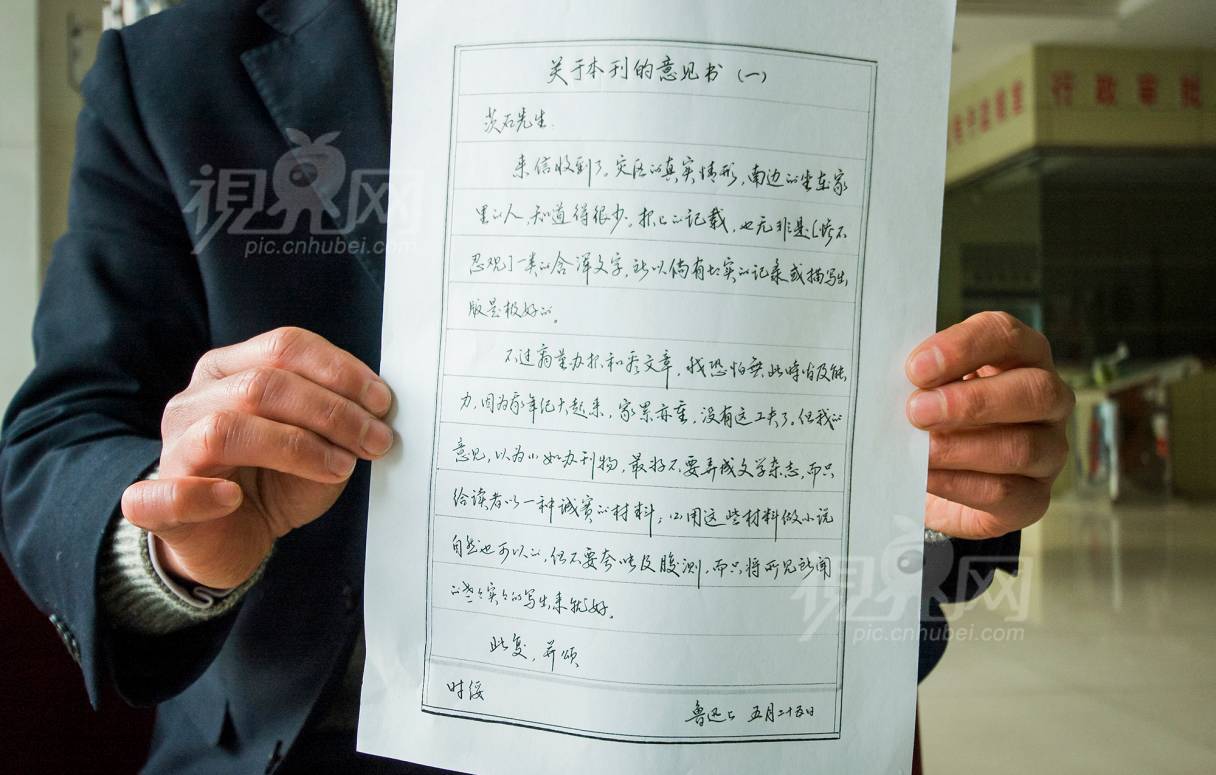 关于本刊的意见书（一）
茨石先生
来信收到了。灾区的真实情形，南边的坐在家
里的人，知道得很少。报上的记载，也无非是「惨不
忍观」一类的含浑文字，所以倘有切实的记录或描写出
版是极好的。
不过商量办报和看文章，我恐怕無此時间及能
力，因为我年纪大起来，家累亦重，没有这工夫了。但我的
意见，以为如办刊物，最好不要弄成文学杂志，而只
给读者以一种诚实的材料；用这些材料做小说
自然也可以的，但不要夸张及腹测，而只将所见所闻
的老老实实的写出来就好。
此复，并颂
时绥
鲁迅上 五月二十五日
行政审批
視界网
pic.cnhubei.com
視界网
pic.cnhubei.com